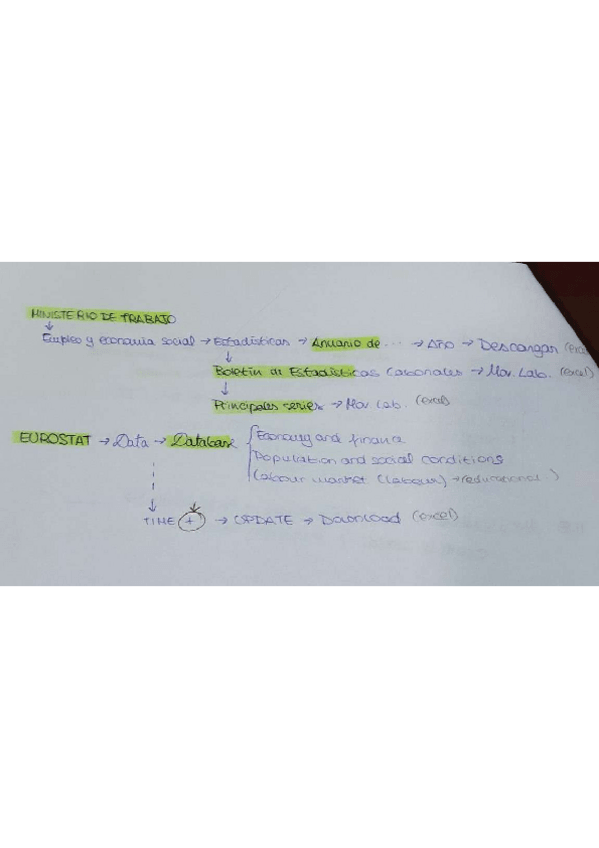 MINISTERIO DE TRABAJO
↓
Empleo y economía social → Estadísticas → Anuario de ... → AÑO → Descargar (exc
↓
Boletín de Estadísticas Laborales → Mov. Lab. (excel)
↓
Principales series → Mov. Lab. (excel)
EUROSTAT → Data → Database { Economy and finance
Population and social conditions
Labour market (labour) →
↓
TIME + → UPDATE → Download (excel)